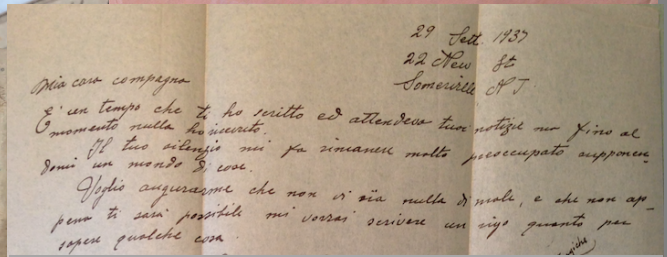 29 Sett. 1937
22 New St
Somerville N J
Mia cara compagna
E' un tempo che ti ho scritto ed attendevo tue notizie ma fino al
momento nulla ho ricevuto.
Il tuo silenzio mi fa rimanere molto preoccupato supponen-
domi un mondo di cose.
Voglio augurarme che non vi sia nulla di male, e che non ap-
pena ti sarà possibile mi vorrai scrivere un rigo quanto per
sapere qualche cosa.